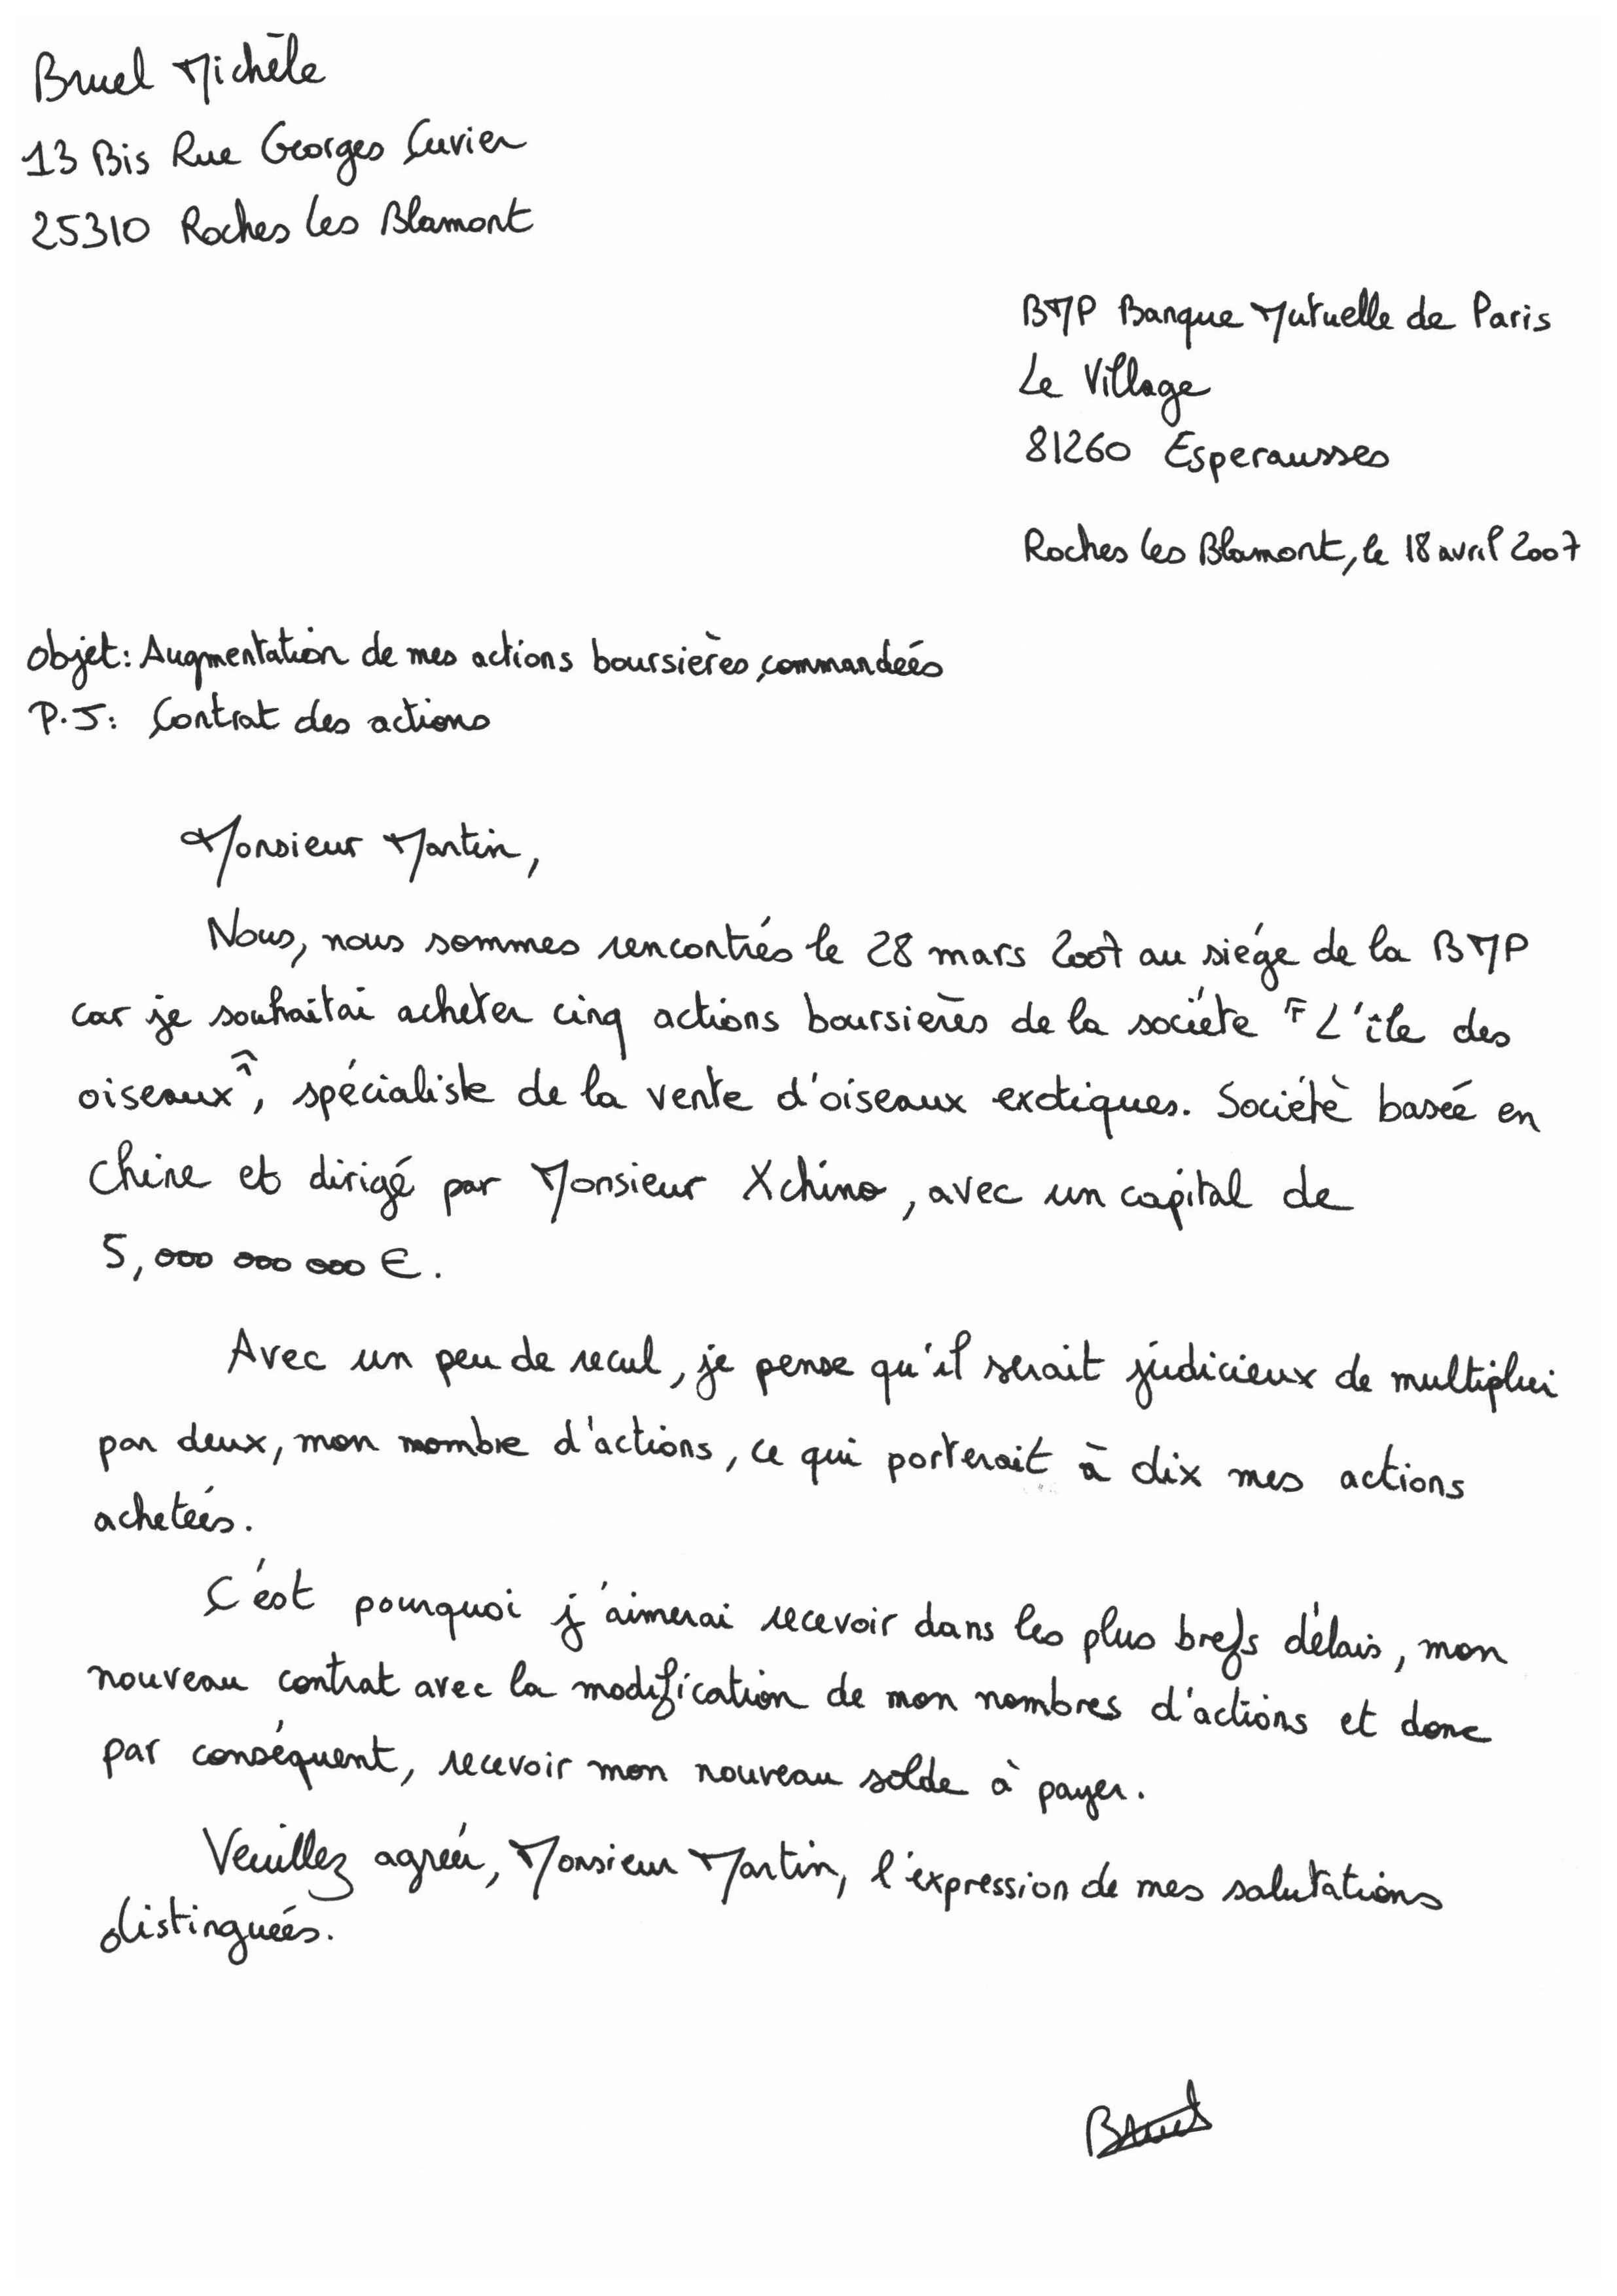 Bruel Michèle
13 Bis Rue Georges Cuvier
25310 Roches les Blamont
BMP Banque Mutuelle de Paris
Le Village
81260 Esperausses
Roches les Blamont, le 18 avril 2007
Objet: Augmentation de mes actions boursières commandées
P.J: Contrat des actions
Monsieur Martin,
Nous, nous sommes rencontrés le 28 mars 2007 au siége de la BMP
car je souhaitai acheter cinq actions boursières de la société "L'île des
oiseaux", spécialiste de la vente d'oiseaux exotiques. Société basée en
Chine et dirigé par Monsieur Xchino, avec un capital de
5,000 000 000 €.
Avec un peu de recul, je pense qu'il serait judicieux de multiplier
par deux, mon nombre d'actions, ce qui porterait à dix mes actions
achetées.
C'est pourquoi j'aimerai recevoir dans les plus brefs délais, mon
nouveau contrat avec la modification de mon nombres d'actions et donc
par conséquent, recevoir mon nouveau solde à payer.
Veuillez agréer, Monsieur Martin, l'expression de mes salutations
distinguées.
Bruel